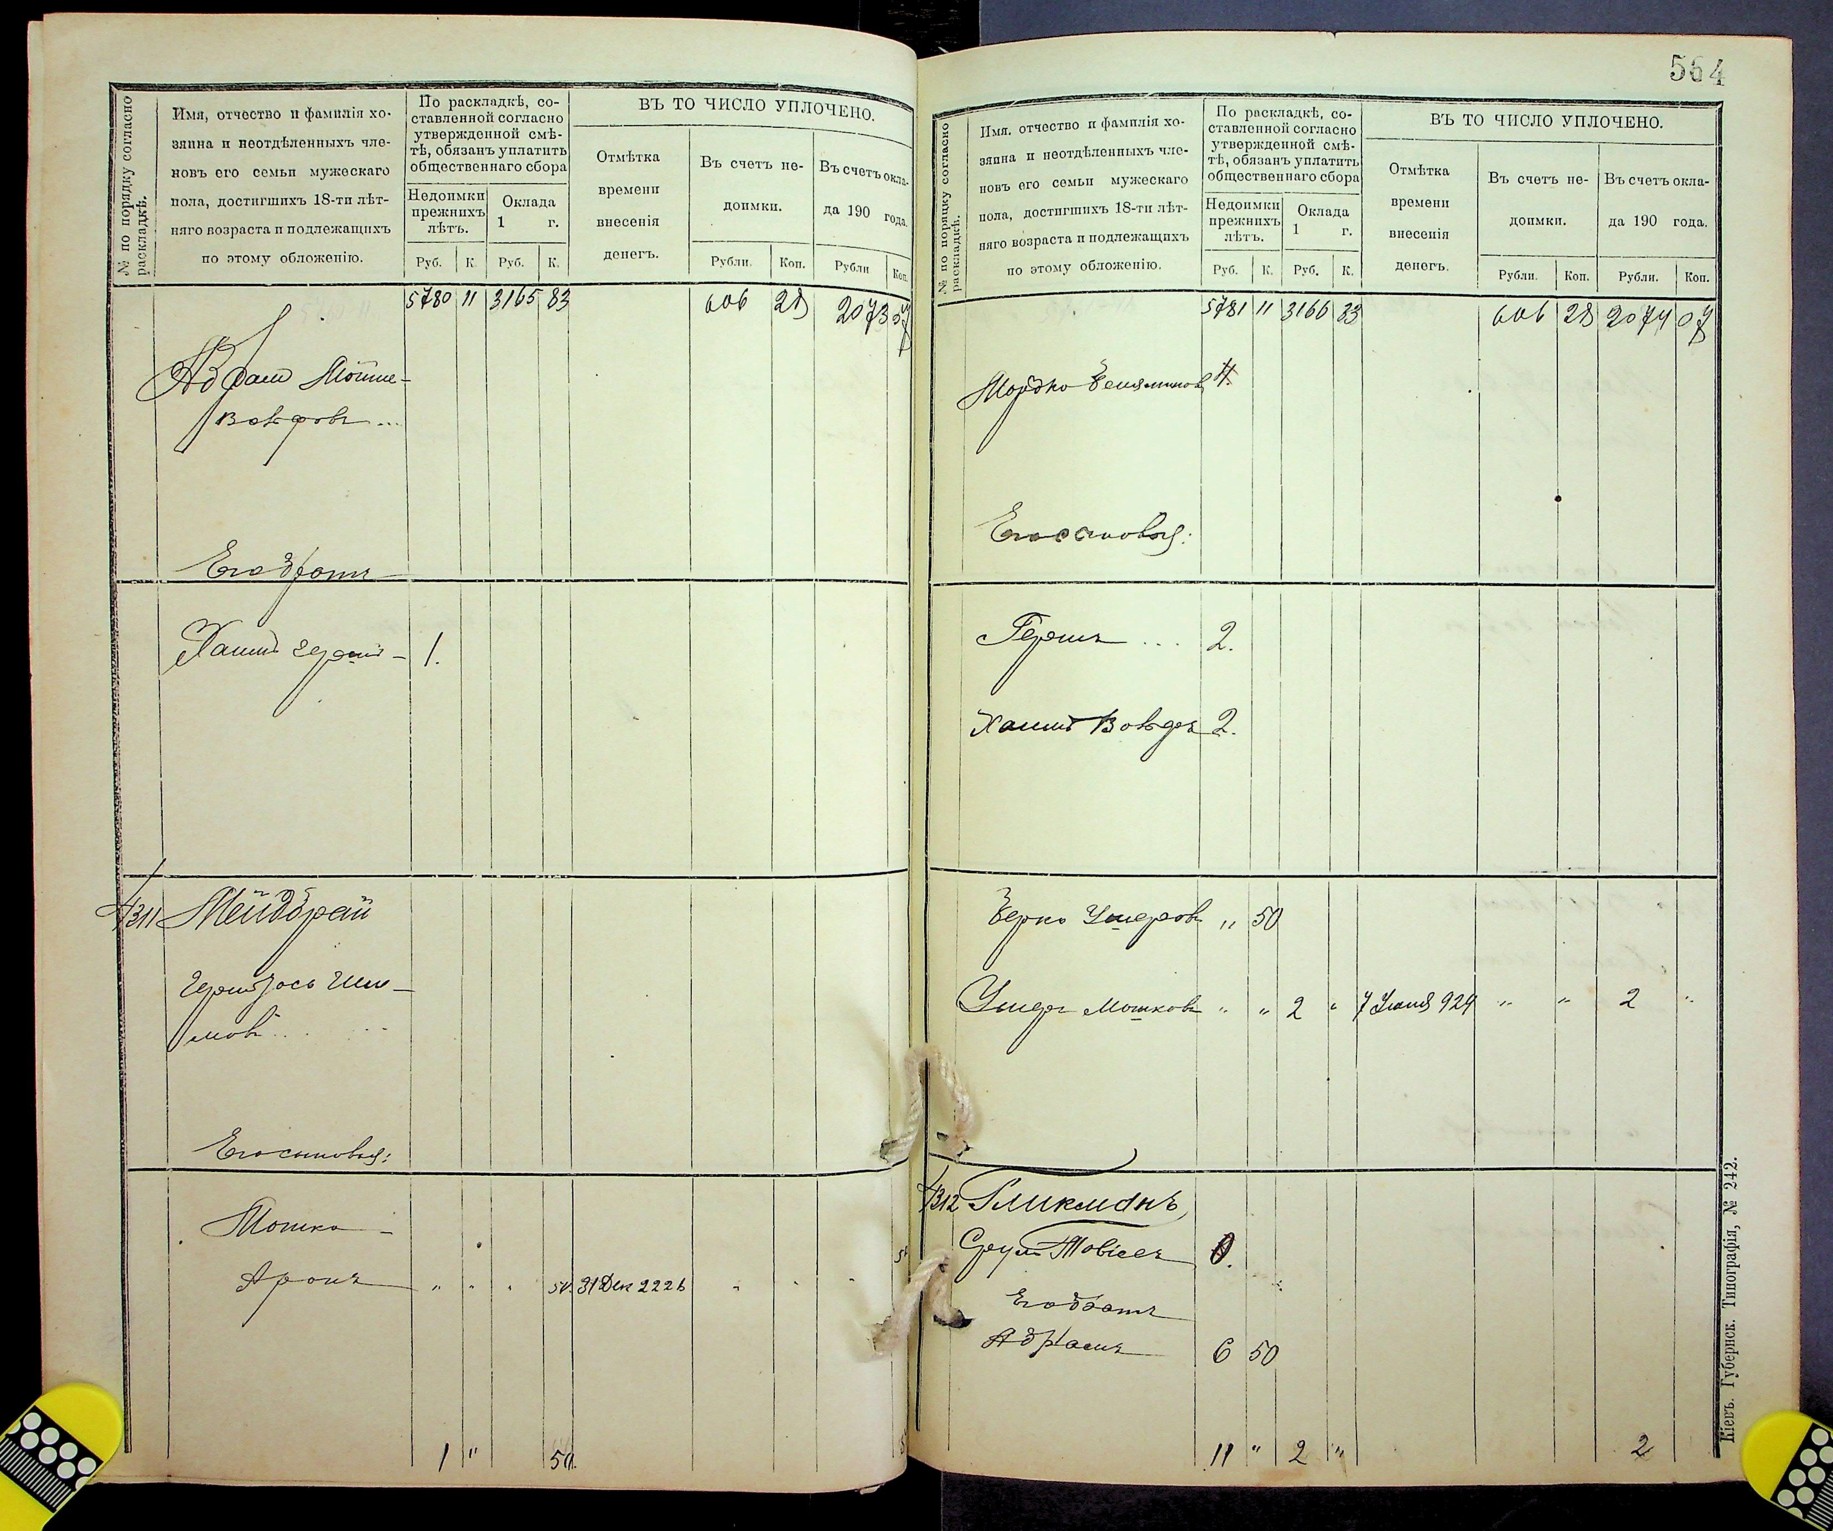 № по порядку согласно раскладкѣ.
Имя, отчество и фамилія хо-
зяина и неотдѣленныхъ чле-
новъ его семьи мужескаго
пола, достигшихъ 18-ти лѣт-
няго возраста и подлежащихъ
по этому обложенію.
По раскладкѣ, со-
ставленной согласно
утвержденной смѣ-
тѣ, обязанъ уплатить
общественнаго сбора
Недоимки
прежнихъ
лѣтъ.
Оклада
1 г.
Руб. К. Руб. К.
ВЪ ТО ЧИСЛО УПЛОЧЕНО.
Отмѣтка
времени
внесенія
денегъ.
Въ счетъ не-
доимки.
Рубли. Коп.
Въ счетъ окла-
да 190 года.
Рубли Коп.
5780 11 3165 83 606 28 2073
Абрам Мойше-
Вольфов ...
Его брат
Хаим Герш - 1.
4311 Мейдбрай
Гершзось Шли-
мов
Его сыновья:
Мошко -
Арон " " " 50 31 Дек
1 " 50
564
№ по порядку согласно раскладкѣ.
Имя, отчество и фамилія хо-
зяина и неотдѣленныхъ чле-
новъ его семьи мужескаго
пола, достигшихъ 18-ти лѣт-
няго возраста и подлежащихъ
по этому обложенію.
По раскладкѣ, со-
ставленной согласно
утвержденной смѣ-
тѣ, обязанъ уплатить
общественнаго сбора
Недоимки
прежнихъ
лѣтъ.
Оклада
1 г.
Руб. К. Руб. К.
ВЪ ТО ЧИСЛО УПЛОЧЕНО.
Отмѣтка
времени
внесенія
денегъ.
Въ счетъ не-
доимки.
Рубли. Коп.
Въ счетъ окла-
да 190 года.
Рубли. Коп.
5781 11 3166 33 606 28 2074 07
Мордко Беняминов 4.
Его сыновья:
Герш ... 2.
Хаим Вольф 2.
Берко Ушеров " 50
Ушер Мошков " " 2 " 7 924 " " 2 "
4312 Гликманъ
Срул Товіев
Его брат
Абрам 6 50
11 " 2 " 2
Кіевъ. Губернск. Типографія, № 242.